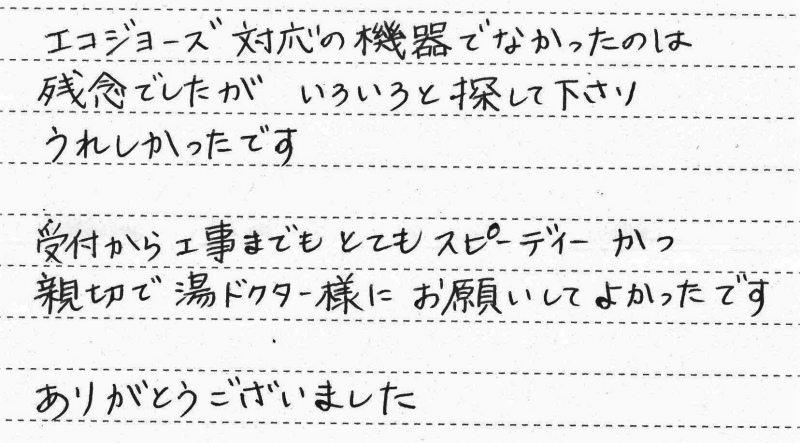 エコジョーズ対応の機器でなかったのは
残念でしたが いろいろと探して下さり
うれしかったです
受付から工事までもとてもスピーディーかつ
親切で湯ドクター様にお願いしてよかったです
ありがとうございました